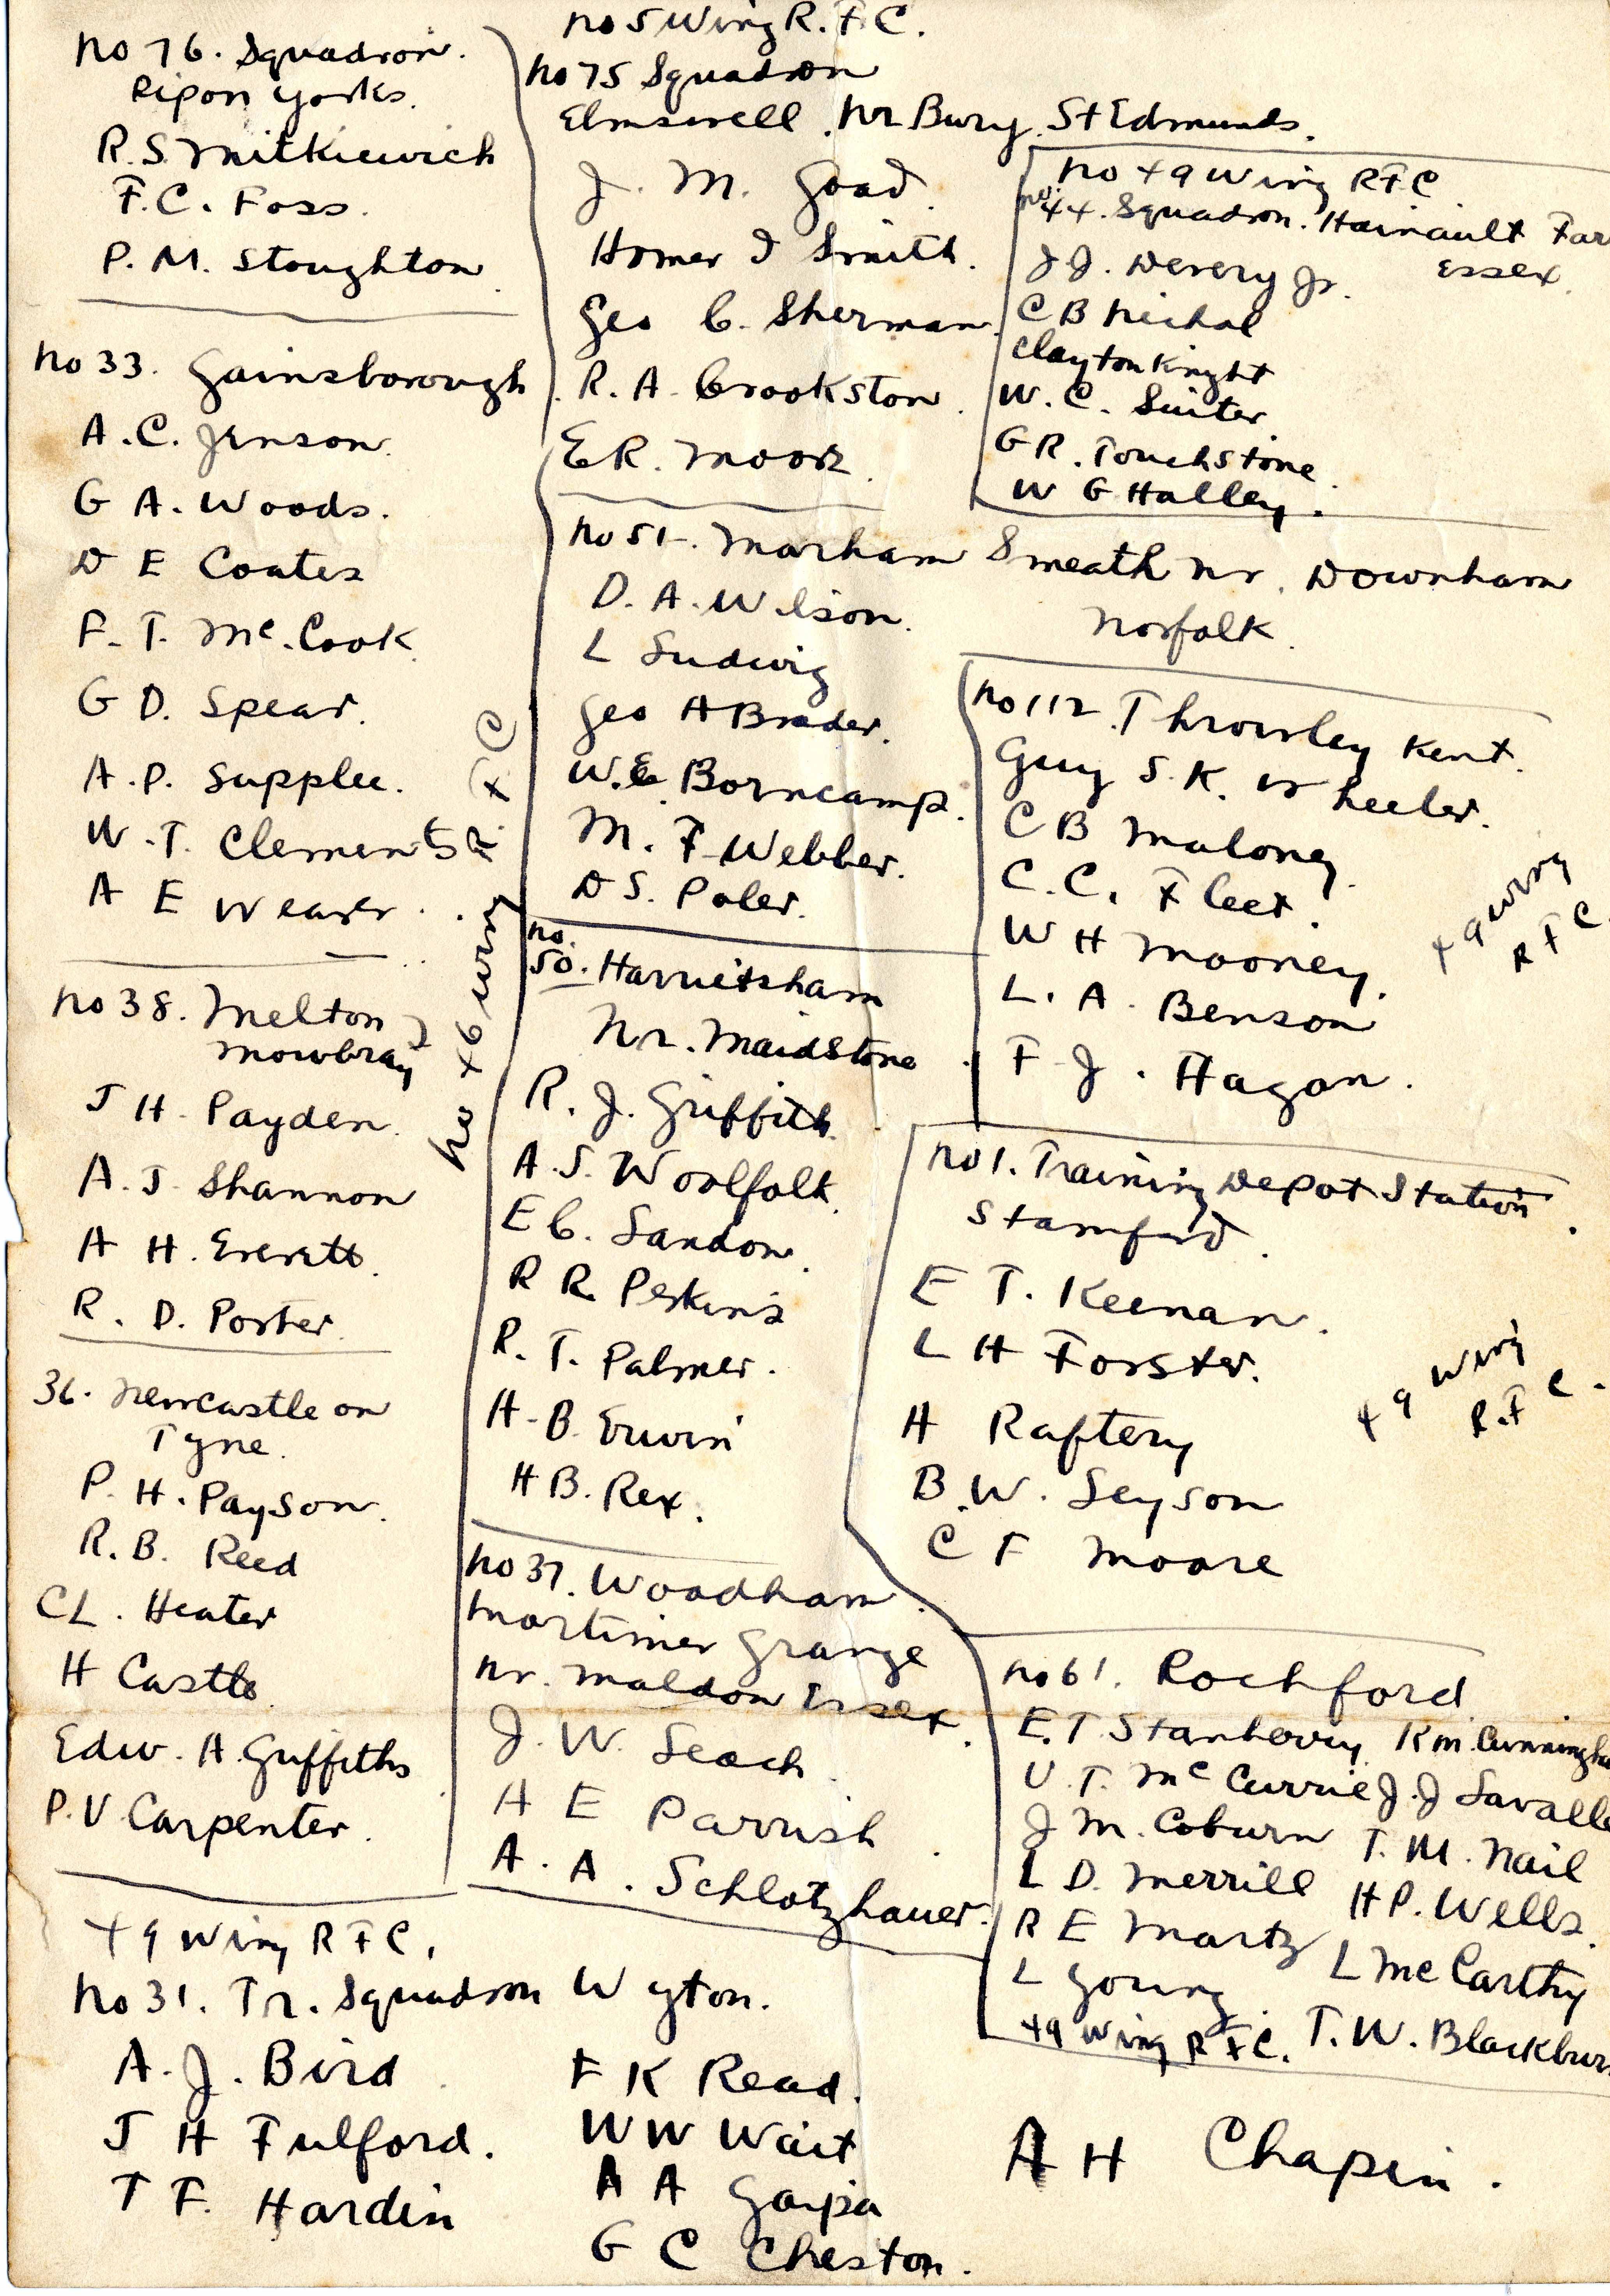 No 76. Squadron.
Ripon Yorks.
R. S. Mitkiewich
F. C. Foss.
P. M. Stoughton.
No 33. Gainsborough
A. C. Jenson.
G A. Woods.
D E Coates
F. T. Mc. Cook
G D. Spear.
A. P. Supplee.
W. T. Clements
A E Weaver.
No 38. Melton
Mowbray
J H. Payden.
A. J. Shannon
A H. Everett.
R. D. Porter
36. Newcastle on
Tyne.
P. H. Payson.
R. B. Reed
C L. Heater
H Castle
Edw. A. Griffiths
P. V. Carpenter.
No 46 Wing R. F C
No 5 Wing R. F. C.
No 75 Squadron
Elmswell. Nr Bury. St Edmunds.
J. M. Goad.
Homer I Smith.
Geo C. Sherman.
R. A. Crookston.
E R. Moore.
No 49 Wing RFC
No. 44. Squadron. Hainault Far
Essex.
J J. Devery Jr.
C B Nichol
Clayton Knight
W. C. Suiter
G R. Touchstone.
W G Halley.
No 51. Marham Smeath nr. Downham
Norfolk.
D. A. Wilson.
L Ludwig
Geo A Brader.
W. E. Borncamp.
M. F Webber.
D S. Poler.
No 112. Throwley Kent.
Guy S. K. Wheeler.
C B Maloney.
C. C. Fleet.
W H Mooney.
L. A. Benson
F J. Hagan.
49 Wing
R F C.
No.
50. Harrietsham
Nr. Maidstone
R. J. Griffith.
A. S. Woolfolk.
E C. Landon.
R R. Perkins
R. T. Palmer.
H. B. Erwin
H B. Rex.
No 1. Training Depot Station.
Stamford.
E T. Keenan.
L H Forster.
H Raftery
B. W. Leyson
C F Moore
49 Wing
R. F C.
No 37. Woodham
Mortimer Grange
nr. Maldon Essex.
J. W. Leach
H E Parrish
A. A. Schlotzhauer.
No 61. Rochford
E. T Stanberry R M. Cunningha
U. T. Mc Currie J. J Lavalle
J M. Coburn T. M. Nail
L D. Merrill H P. Wells.
R E Martz L Mc Carthy
L Young.
49 Wing R F C. T. W. Blackbur
49 Wing R F C.
No 31. Tr. Squadron Wyton.
A. J. Bird F K Read.
J H Fulford. W W Wait
T F. Hardin A A Gaipa
G C Cheston.
A H Chapin.